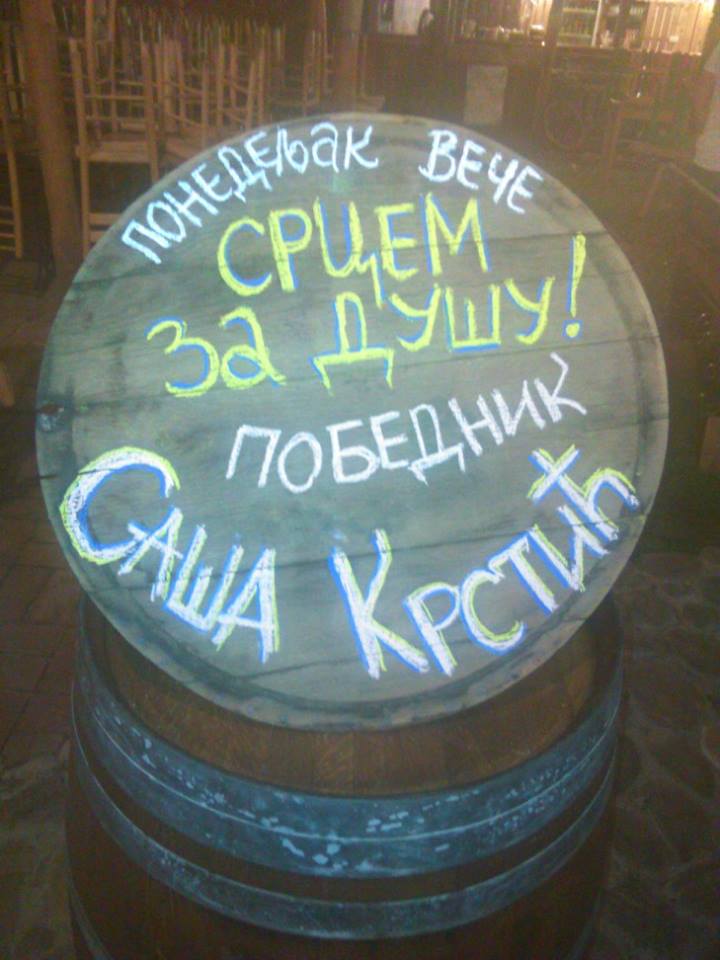 ПОНЕДЕЉАК ВЕЧЕ
СРЦЕМ
ЗА ДУШУ!
ПОБЕДНИК
САША КРСТИЋ